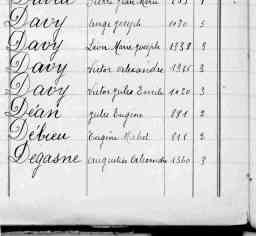 David Pierre Jean Marie
Davy Ange Joseph 1030 5
Davy Léon Marie Joseph 1338 3
Davy Victor Alexandre 1365 3
Davy Victor Jules Emile 1020 3
Déan Jules Eugène 881 2
Débieu Eugène 818 2
Degasne Alexandre 1360 3